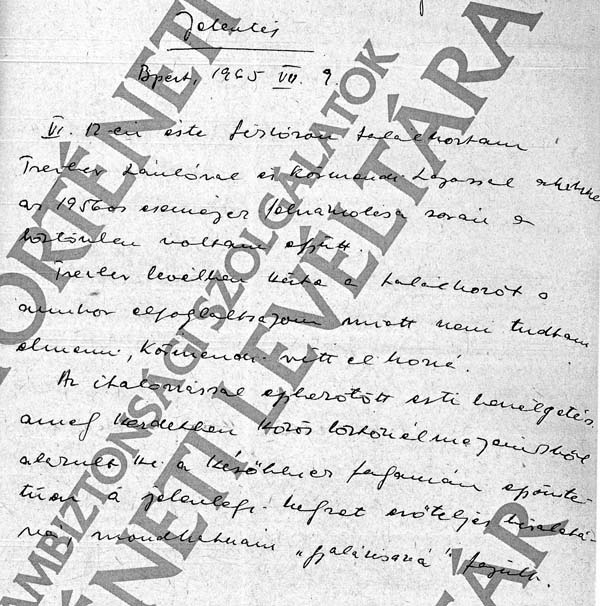 Jelentés
Bpest, 1965 VII. 9.
VI. 12-én este találkoztam
Treiber Lászlóval és Körmendi Lajossal akikkel
az 1956os események felszámolása során a
börtönben voltam együtt.
Treiber levélben kérte a találkozót s
amikor elfoglaltságom miatt nem tudtam
elmenni, Körmendi vitt el hozzá.
Az italozással egybekötött esti beszélgetés,
amely kezdetben közös börtönélményeinkből
alakult ki a későbbiek folyamán
a jelenlegi helyzet erőteljes
mondhatnám
TÖRTÉNETI
ÁMBIZTONSÁGI SZOLGÁLATOK
LEVÉLTÁRA
NETI LEVÉLTÁRA